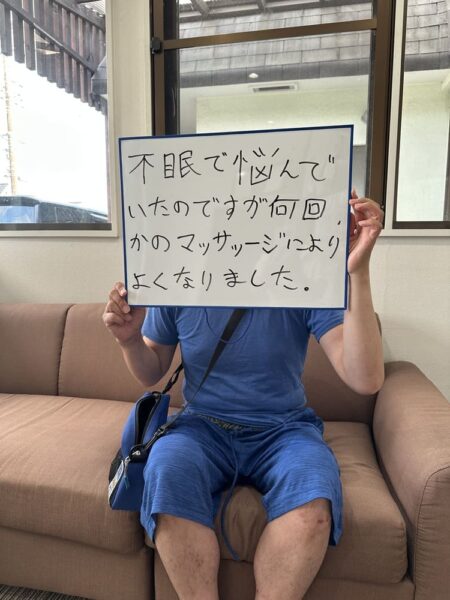 不眠で悩んで
いたのですが何回
かのマッサッージにより
よくなりました。